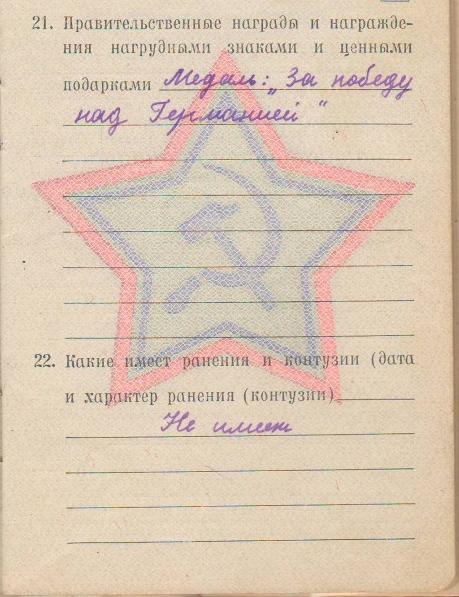 21. Правительственные награды и награжде-
ния нагрудными знаками и ценными
подарками Медаль: „За победу
над Германией“
22. Какие имеет ранения и контузии (дата
и характер ранения (контузии)
Не имеет